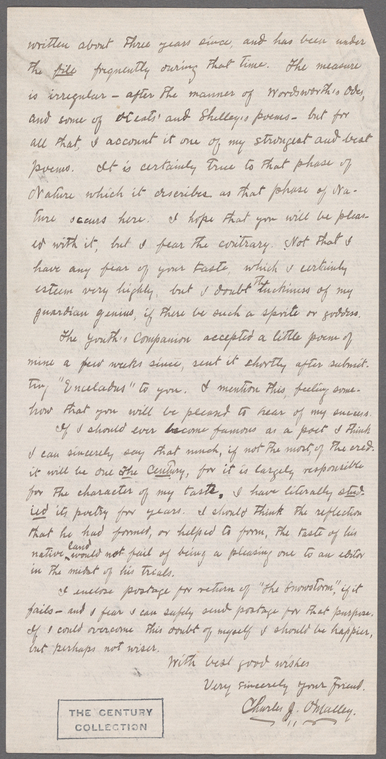 written about three years since, and has been under
the file frequently during that time. The measure
is irregular – after the manner of Wordsworth's Odes,
and some of Keats' and Shelley's poems – but for
all that, I account it one of my strongest and best
poems. It is certainly true to that phase of
Nature which it describes as that phase of Na-
ture occurs here. I hope that you will be pleas-
ed with it, but I fear the contrary. Not that I
have any fear of your taste, which I certainly
esteem very highly, but I doubt the luckiness of my
guardian genius, if there be such a sprite or goddess.
The Youth's Companion accepted a little poem of
mine a few weeks since, sent it shortly after submit-
ting "Enceladus" to you. I mention this, feeling some-
how that you will be pleased to hear of my success.
If I should ever become famous as a poet I think
I can sincerely say that much, if not the most, of the cred-
it will be due The Century, for it is largely responsible
for the character of my taste. I have literally stud-
ied its poetry for years. I should think the reflection
that he had formed, or helped to form, the taste of his
native land would not fail of being a pleasing one to an editor
in the midst of his trials.
I enclose postage for return of "The Snowstorm", if it
fails – and I fear I can safely send postage for that purpose.
If I could overcome this doubt of myself I should be happier,
but perhaps not wiser.
With best good wishes
Very sincerely your friend.
Charles J. O'Malley.
THE CENTURY
COLLECTION